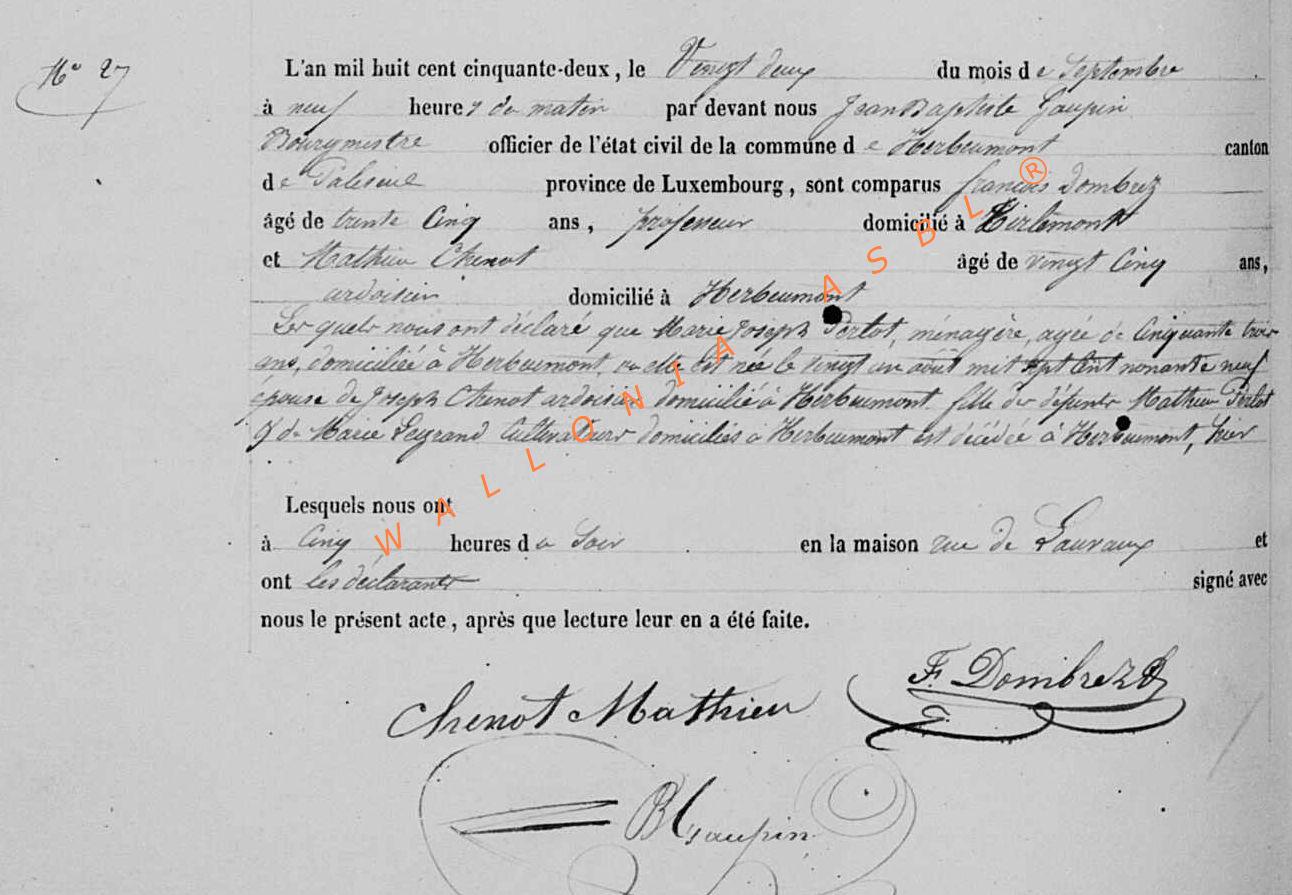 N° 27
L'an mil huit cent cinquante-deux, le Vingt deux du mois de Septembre
à neuf heures du matin par devant nous Jean Baptiste Gaupin
Bourgmestre officier de l'état civil de la commune de Herbeumont canton
de Paliseul province de Luxembourg, sont comparus françois Dombrez
âgé de trente Cinq ans, professeur domicilié à Tirlemont
et Mathieu Chenot âgé de vingt Cinq ans,
ardoisier domicilié à Herbeumont
Les quels nous ont déclaré que Marie Joseph Perlot, ménagère, agée de Cinquante trois
ans, domiciliée à Herbeumont, où elle est née le vingt un août mil sept Cent nonante neuf
épouse de Joseph Chenot ardoisier domicilié à Herbeumont fille des défunts Mathieu Perlot
& de Marie Legrand Cultivateurs domiciliés à Herbeumont est décédée à Herbeumont, hier
Lesquels nous ont
à Cinq heures du Soir en la maison rue de Lauvaux et
ont les déclarants signé avec
nous le présent acte, après que lecture leur en a été faite.
F. Dombrez
Chenot Mathieu
JB Gaupin
WALLONIA ASBL ®